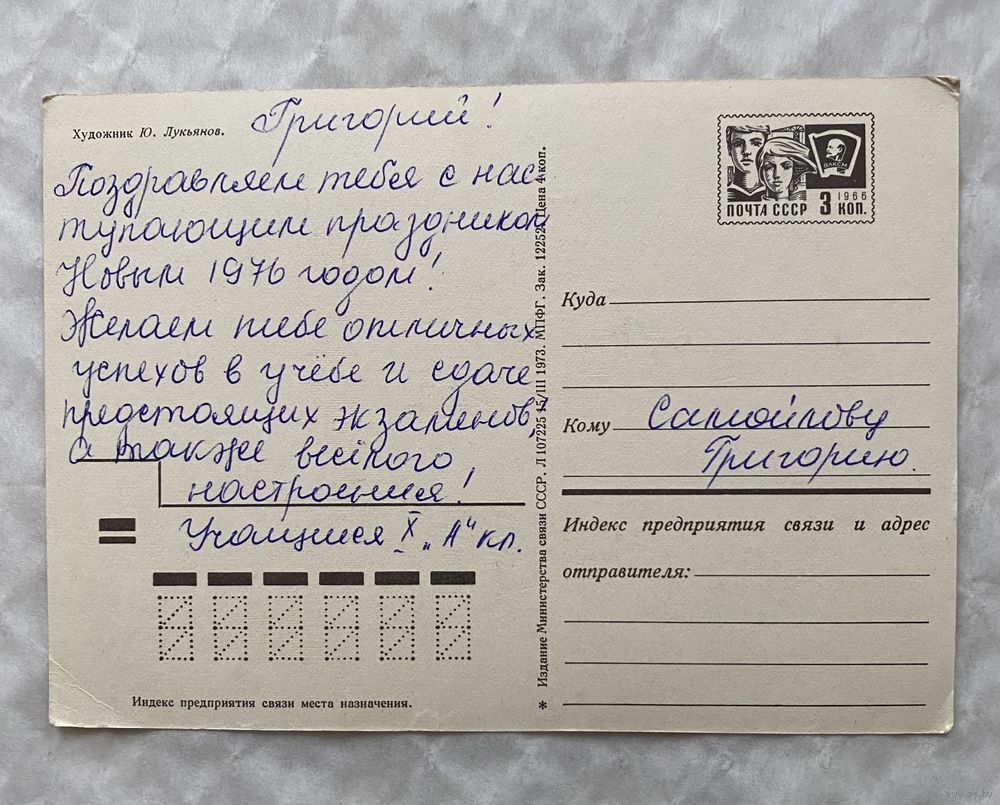 Художник Ю. Лукьянов.
Григорий!
Поздравляем тебя с нас
тупающим праздником
Новым 1976 годом!
Желаем тебе отличных
успехов в учёбе и сдаче
предстоящих экзаменов,
а также весёлого
настроения!
Учащиеся X „А" кл.
Индекс предприятия связи места назначения.
* Издание Министерства связи СССР. Л 107225 15/III 1973. МПФГ. Зак. 12252. Цена 4 коп.
ВЛКСМ
1966
ПОЧТА СССР 3 КОП.
Куда
Кому Самойлову
Григорию.
Индекс предприятия связи и адрес
отправителя:
www.ay.by